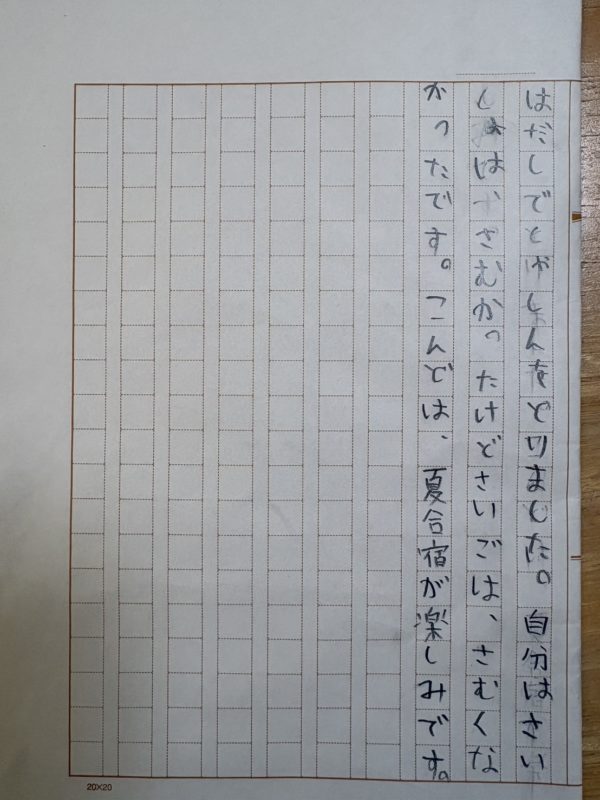 はだしでしゃしんをとりました。自分はさい
しょは、さむかったけどさいごは、さむくな
かったです。こんどは、夏合宿が楽しみです。
20×20